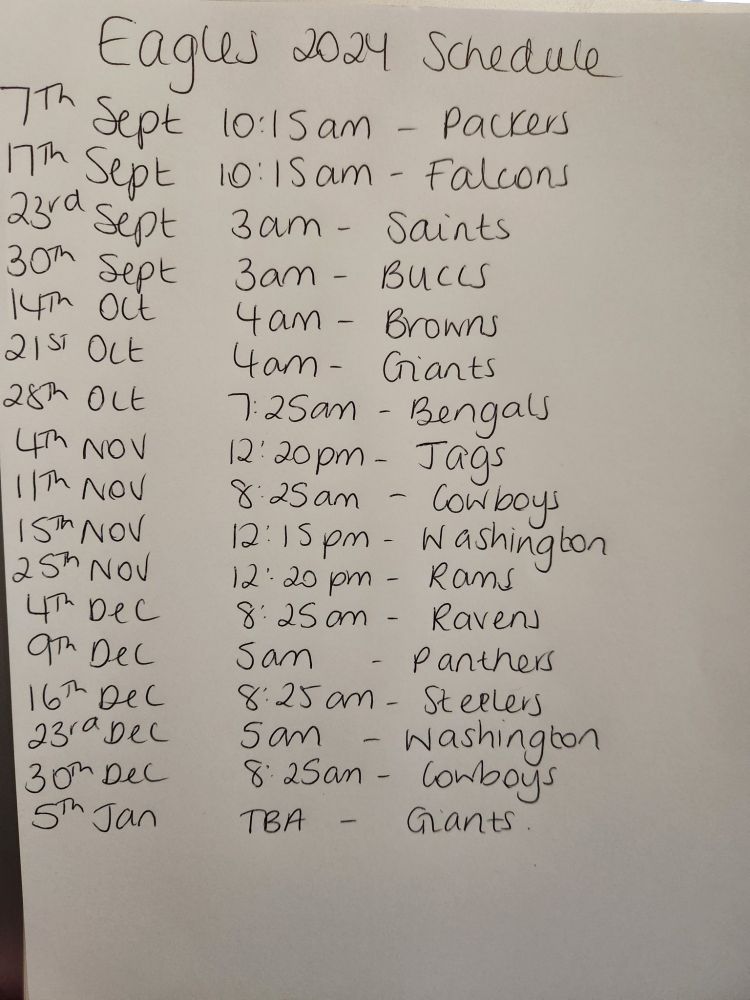 Eagles 2024 Schedule
7Th Sept 10:15am - Packers
17Th Sept 10:15am - Falcons
23rd Sept 3am - Saints
30Th Sept 3am - Buccs
14Th Oct 4am - Browns
21ST Oct 4am - Giants
28th Oct 7:25am - Bengals
4Th Nov 12:20pm - Jags
11Th Nov 8:25am - Cowboys
15Th Nov 12:15pm - Washington
25th Nov 12:20pm - Rams
4Th Dec 8:25am - Ravens
9Th Dec 5am - Panthers
16Th Dec 8:25am - Steelers
23rd Dec 5am - Washington
30Th Dec 8:25am - Cowboys
5Th Jan TBA - Giants.